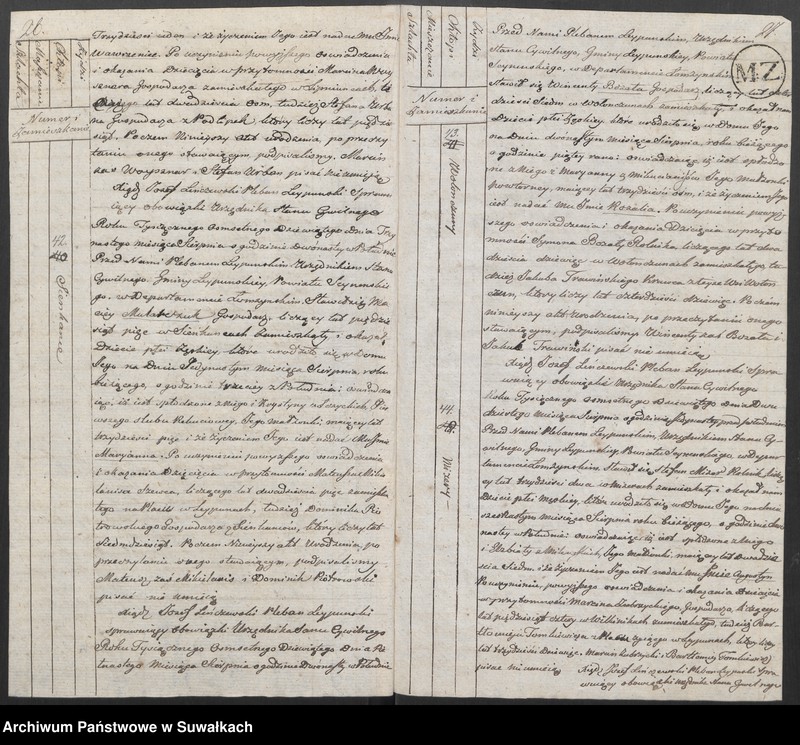 26.
Żydzi
Chłopi
Mieszczanie
Szlachta
Numer i
Zamieszkanie
Trzydzieści ieden i że życzeniem Jego iest nadać mu Imie
Wawrzeniec. Po uczynieniu powyższego oświadczenia
i okazania Dziecięcia w przytomności Marcina
Gospodarza zamieszkałego w
lat dwadzieścia osm, tudzież Stefana Urba
na Gospodarza z liczy lat pięćdzie
siąt. Poczem Niniejszy Akt Urodzenia, po przeczy
taniu onego stawaiącym, podpisaliśmy. Marcin
zaś i Stefan Urban pisać nie umieią
Xiądz Józef Linczewski Pleban Leypunski Spraw
uiący obowiązki Urzędnika Stanu Cywilnego
42.
Sienkańce
Roku Tysiącznego Osmsetnego Dziewiątego Dnia Trzy
nastego miesiąca Sierpnia o godzinie Dwunastey w Południe
Przed Nami Plebanem Leypunskim Urzędnikiem Stanu
Cywilnego Gminy Leypunskiey, Powiatu Seynenskie
go, w Departamencie Łomżynskim, Stawił się Ma
ciey Gospodarz, liczący lat pięćdzie
siąt pięć w Sienkańcach zamieszkały i okazał
Dziecie płci Żeńskiey, które urodziło się w Domu
Jego na Dniu Jedynastym miesiąca Sierpnia roku
bieżącego, o godzinie trzeciey z Południa: oświadcza
iąc, iż iest spłodzone z Niego i Krystyny
Jego małżonki, maiącey lat
trzydzieści pięć i że życzeniem Jego iest nadać Mu Imie
Maryanna. Po uczynieniu powyższego oświadczenia
i okazania Dziecięcia w przytomności Mateusza
Szewca, liczącego lat dwadzieścia pięć zamieszka
łego w Leypunach, tudzież Dominika Pio
trowskiego Gospodarza z Sienkańców, który liczy lat
siedmdziesiąt. Poczem Niniejszy Akt Urodzenia, po
przeczytaniu onego stawaiącym, podpisaliśmy.
Mateusz zaś i Dominik Piotrowski
pisać nie umieią
Xiądz Józef Linczewski Pleban Leypunski
sprawuiący obowiązki Urzędnika Stanu Cywilnego
Roku Tysiącznego Osmsetnego Dziewiątego Dnia Pię
tnastego Miesiąca Sierpnia o godzinie Dwunastey w Południe
27.
MZ
Żydzi
Chłopi
Mieszczanie
Szlachta
Numer i
Zamieszkanie
Przed Nami Plebanem Leypunskim, Urzędnikiem
Stanu Cywilnego, Gminy Leypunskiey, Powiatu
Seynenskiego, w Departamencie Łomżynskim
Stawił się Wincenty Bozata Gospodarz, liczący lat
dzieści siedm w Wołonczunach zamieszkały i okazał Nam
Dziecie płci Żeńskiey, które urodziło się w Domu Jego
43.
Wołonczuny
na Dniu dwunastym miesiąca Sierpnia, roku bieżącego
o godzinie piątey rano: oświadczaiąc iż iest spłodzo
ne z Niego z Maryanny z Jego Małżonki
powtórney, maiącey lat trzydzieści osm, i że życzeniem Jego
iest nadać mu Imie Rozalia. Po uczynieniu powyż
szego oświadczenia i okazania Dziecięcia w przyto
mności Symona Bozaty Rolnika liczącego lat dwa
dzieścia dziewięć w Wołonczunach zamieszkałego, tu
dzież Jakuba Trawinskiego z teyże Wsi Wołon
czun, który liczy lat czterdzieści dziewięć. Poczem
niniejszy Akt Urodzenia, po przeczytaniu onego
stawaiącym, podpisaliśmy. Wincenty zaś Bozata i
Jakub Trawinski pisać nie umieią
Xiądz Józef Linczewski Pleban Leypunski Spra
wuiący obowiązki Urzędnika Stanu Cywilnego
44.
Mizary
Roku Tysiącznego Osmsetnego Dziewiątego Dnia Dwu
dziestego Miesiąca Sierpnia o godzinie przed południem
Przed Nami Plebanem Leypunskim, Urzędnikiem Stanu Cy
wilnego, Gminy Leypunskiey, Powiatu Seynenskiego, w Depar
tamencie Łomżynskim, Stawił się Stefan Mizar Rolnik, liczą
cy lat trzydzieści dwa w Mizarach zamieszkały i okazał nam
Dziecie płci Męzkiey, które urodziło się w Domu Jego na dniu
szesnastym miesiąca Sierpnia roku bieżącego, o godzinie dwu
nastey w Południe: oświadczaiąc iż iest spłodzone z Niego
i Elżbiety z Jego małżonki, maiącey lat dwadzie
ścia siedm, i że życzeniem Jego iest nadać mu Imie Augustyn
Po uczynieniu, powyższego oświadczenia i okazania Dziecięcia
w przytomności Marcina Gospodarza liczącego
lat pięćdziesiąt cztery w zamieszkałego, tudzież Bar
tłomieja Tomkiewicza w Leypunach, który liczy
lat trzydzieści dziewięć. Marcin i Bartłomiey Tomkiewicz
pisać nie umieią. Xiądz Józef Linczewski Pleban Leypunski Spra
wuiący obowiązki Urzędnika Stanu Cywilnego
Archiwum Państwowe w Suwałkach